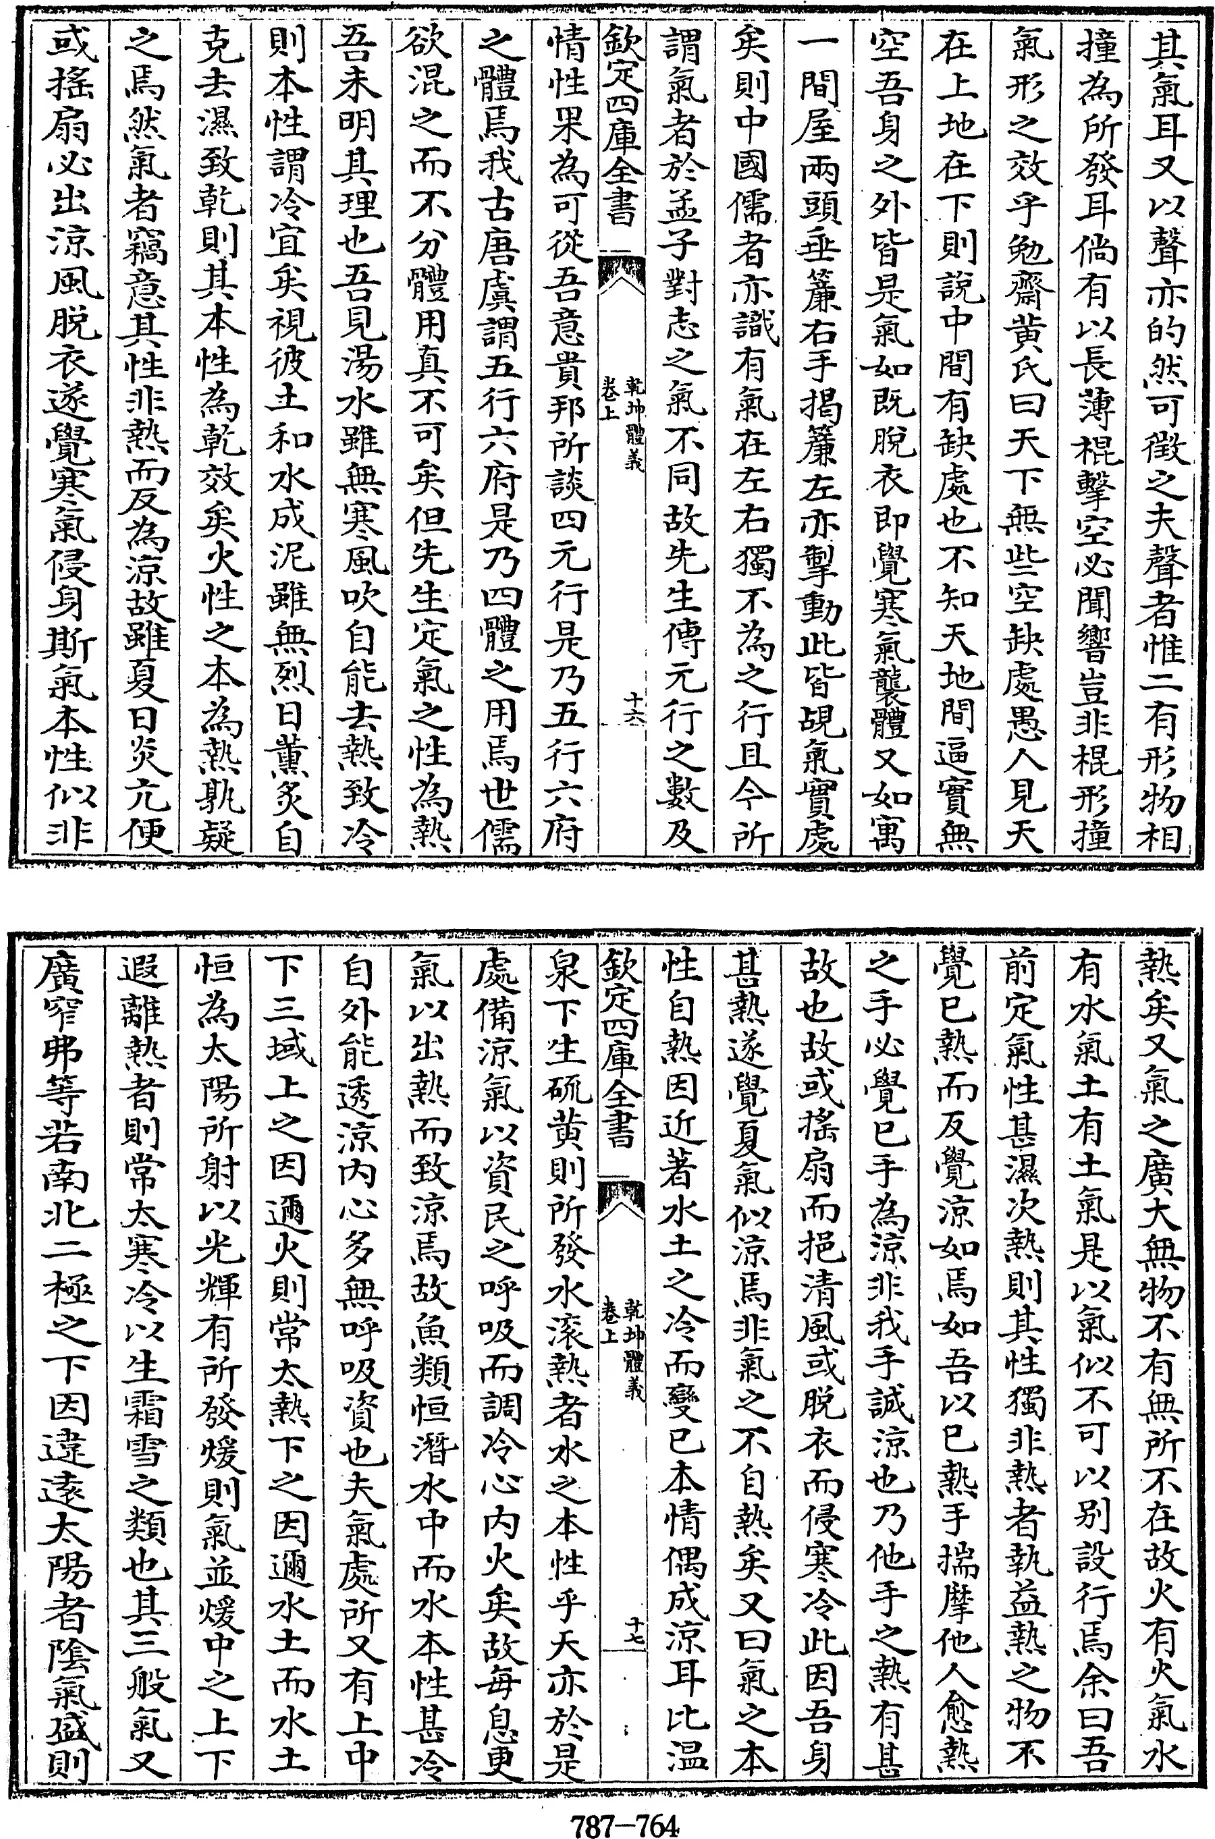 其氣耳又以聲亦的然可徴之夫聲者惟二有形物相
撞為所發耳倘有以長薄棍擊空必聞響豈非棍形撞
氣形之效乎勉齋黄氏曰天下無些空缺處愚人見天
在上地在下則說中間有缺處也不知天地間逼實無
空吾身之外皆是氣如既脫衣即覺寒氣襲體又如寓
一間屋兩頭垂簾右手揭簾左亦掣動此皆覘氣實處
矣則中國儒者亦識有氣在左右獨不為之行且今所
謂氣者於孟子對志之氣不同故先生傳元行之數及
欽定四庫全書
乾坤體義
卷上
十六
情性果為可從吾意貴邦所談四元行是乃五行六府
之體焉我古唐虞謂五行六府是乃四體之用焉世儒
欲混之而不分體用真不可矣但先生定氣之性為熱
吾未明其理也吾見湯水雖無寒風吹自能去熱致冷
則本性謂冷宜矣視彼土和水成泥雖無烈日薰炙自
克去濕致乾則其本性為乾效矣火性之本為熱孰疑
之焉然氣者竊意其性非熱而反為涼故雖夏日炎亢便
或搖扇必出涼風脱衣遂覺寒氣侵身斯氣本性似非
熱矣又氣之廣大無物不有無所不在故火有火氣水
有水氣土有土氣是以氣似不可以别設行焉余曰吾
前定氣性甚濕次熱則其性獨非熱者執益熱之物不
覺已熱而反覺涼如焉如吾以已熱手揣摩他人愈熱
之手必覺已手為涼非我手誠涼也乃他手之熱有甚
故也故或搖扇而挹清風或脱衣而侵寒冷此因吾身
甚熱遂覺夏氣似涼焉非氣之不自熱矣又曰氣之本
性自熱因近著水土之冷而變已本情偶成涼耳比温
欽定四庫全書
乾坤體義
卷上
十七
泉下生硫黄則所發水滾熱者水之本性乎天亦於是
處備涼氣以資民之呼吸而調冷心内火矣故每息更
氣以出熱而致涼焉故魚類恒潛水中而水本性甚冷
自外能透涼内心多無呼吸資也夫氣處所又有上中
下三域上之因邇火則常太熱下之因邇水土而水土
恒為太陽所射以光輝有所發煖則氣並煖中之上下
遐離熱者則常太寒冷以生霜雪之類也其三般氣又
廣窄弗等若南北二極之下因違遠太陽者陰氣盛則
787—764